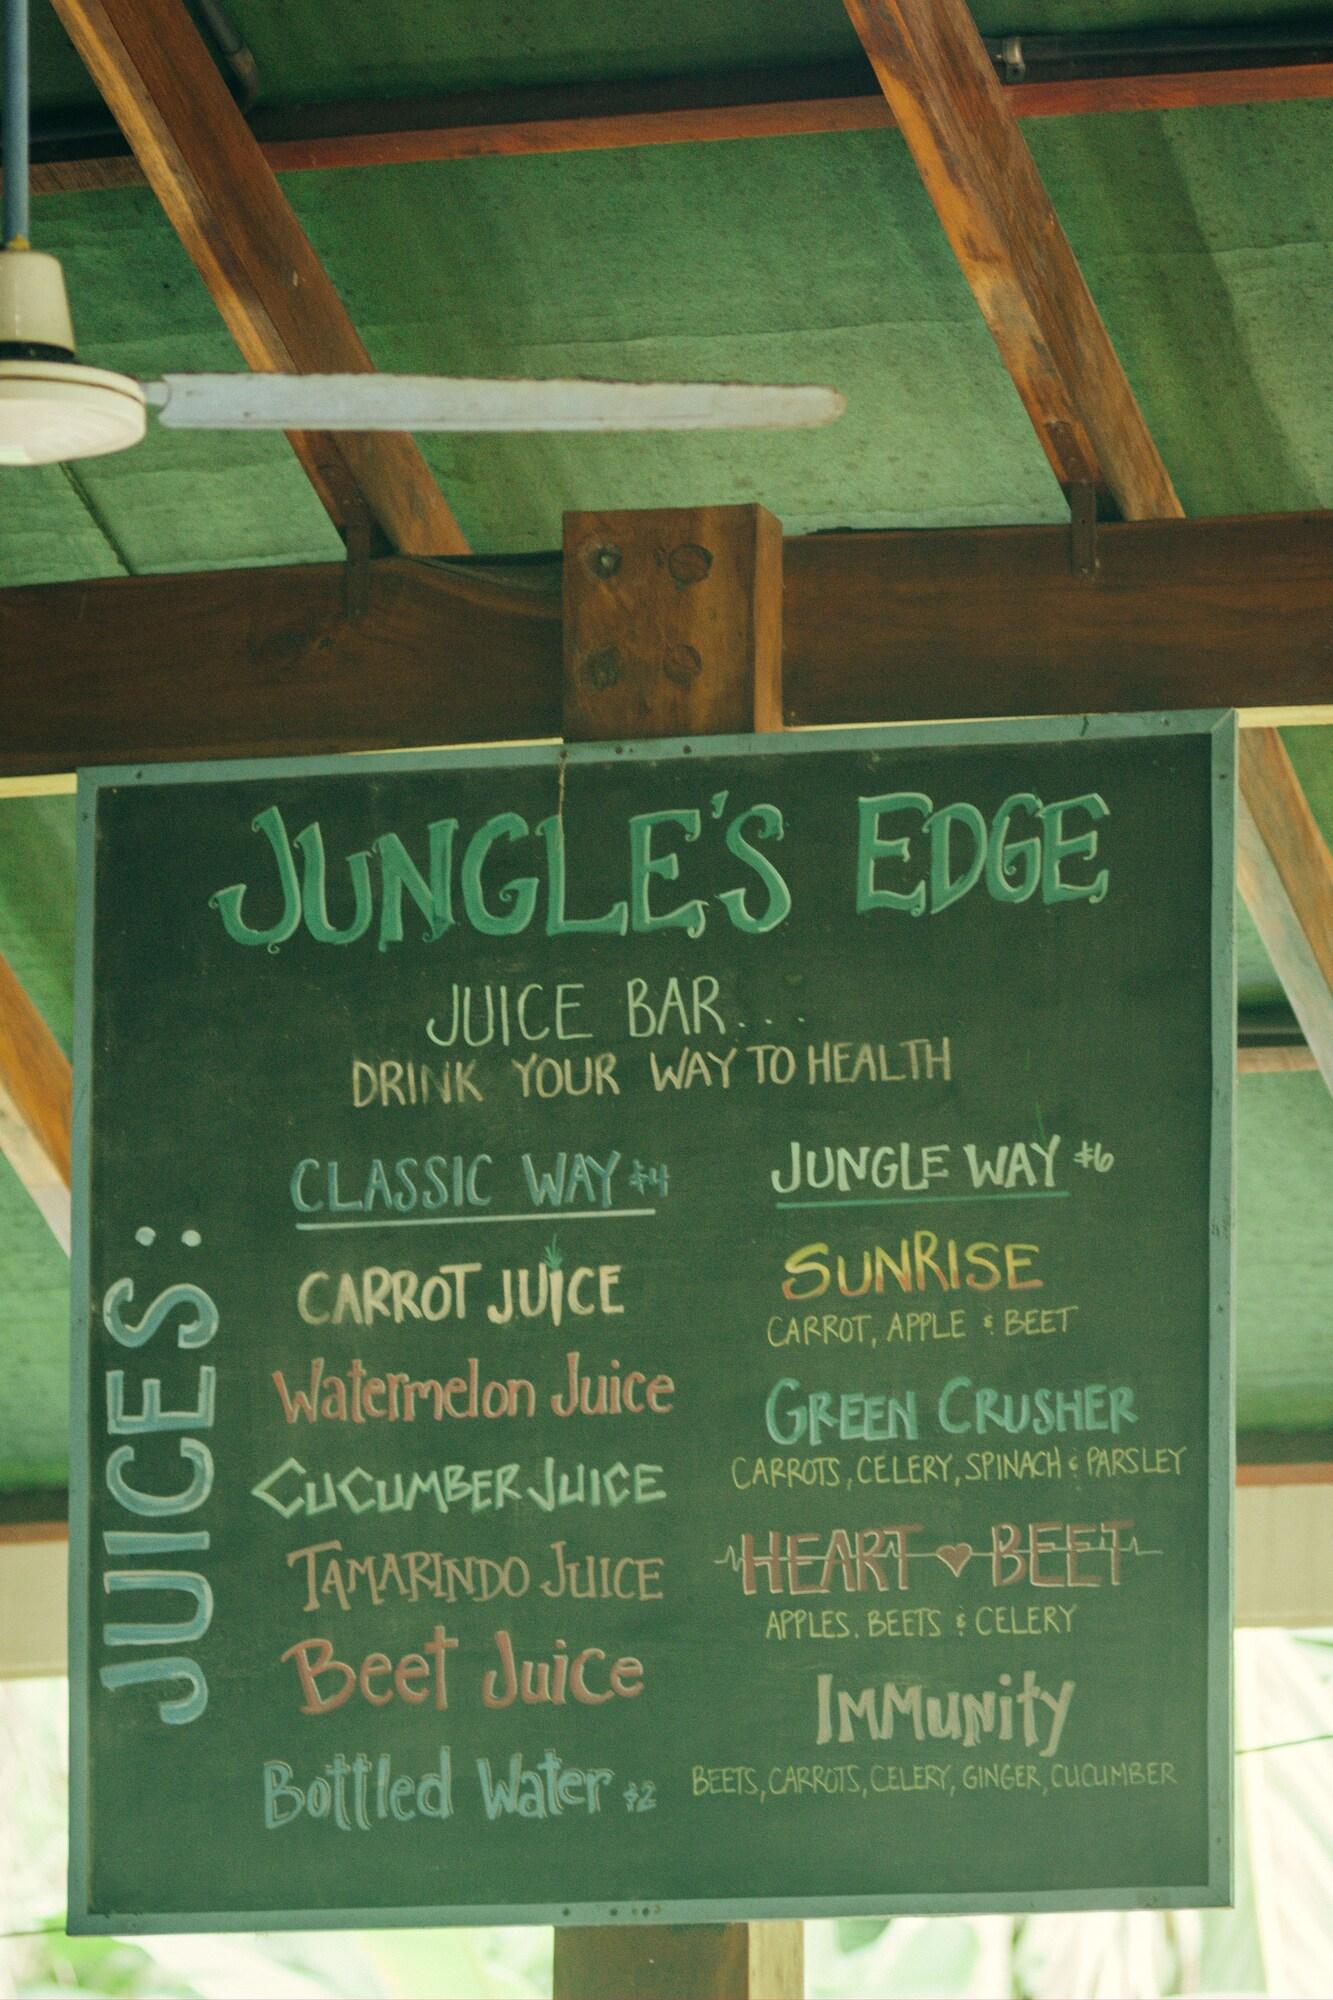 JUNGLE'S EDGE
JUICE BAR...
DRINK YOUR WAY TO HEALTH
JUICES:
CLASSIC WAY $4
CARROT JUICE
Watermelon Juice
CUCUMBER JUICE
TAMARINDO JUICE
Beet Juice
Bottled Water $2
JUNGLE WAY $6
SUNRISE
CARROT, APPLE & BEET
GREEN CRUSHER
CARROTS, CELERY, SPINACH & PARSLEY
HEART ♥ BEET
APPLES. BEETS & CELERY
IMMUNITY
BEETS, CARROTS, CELERY, GINGER, CUCUMBER